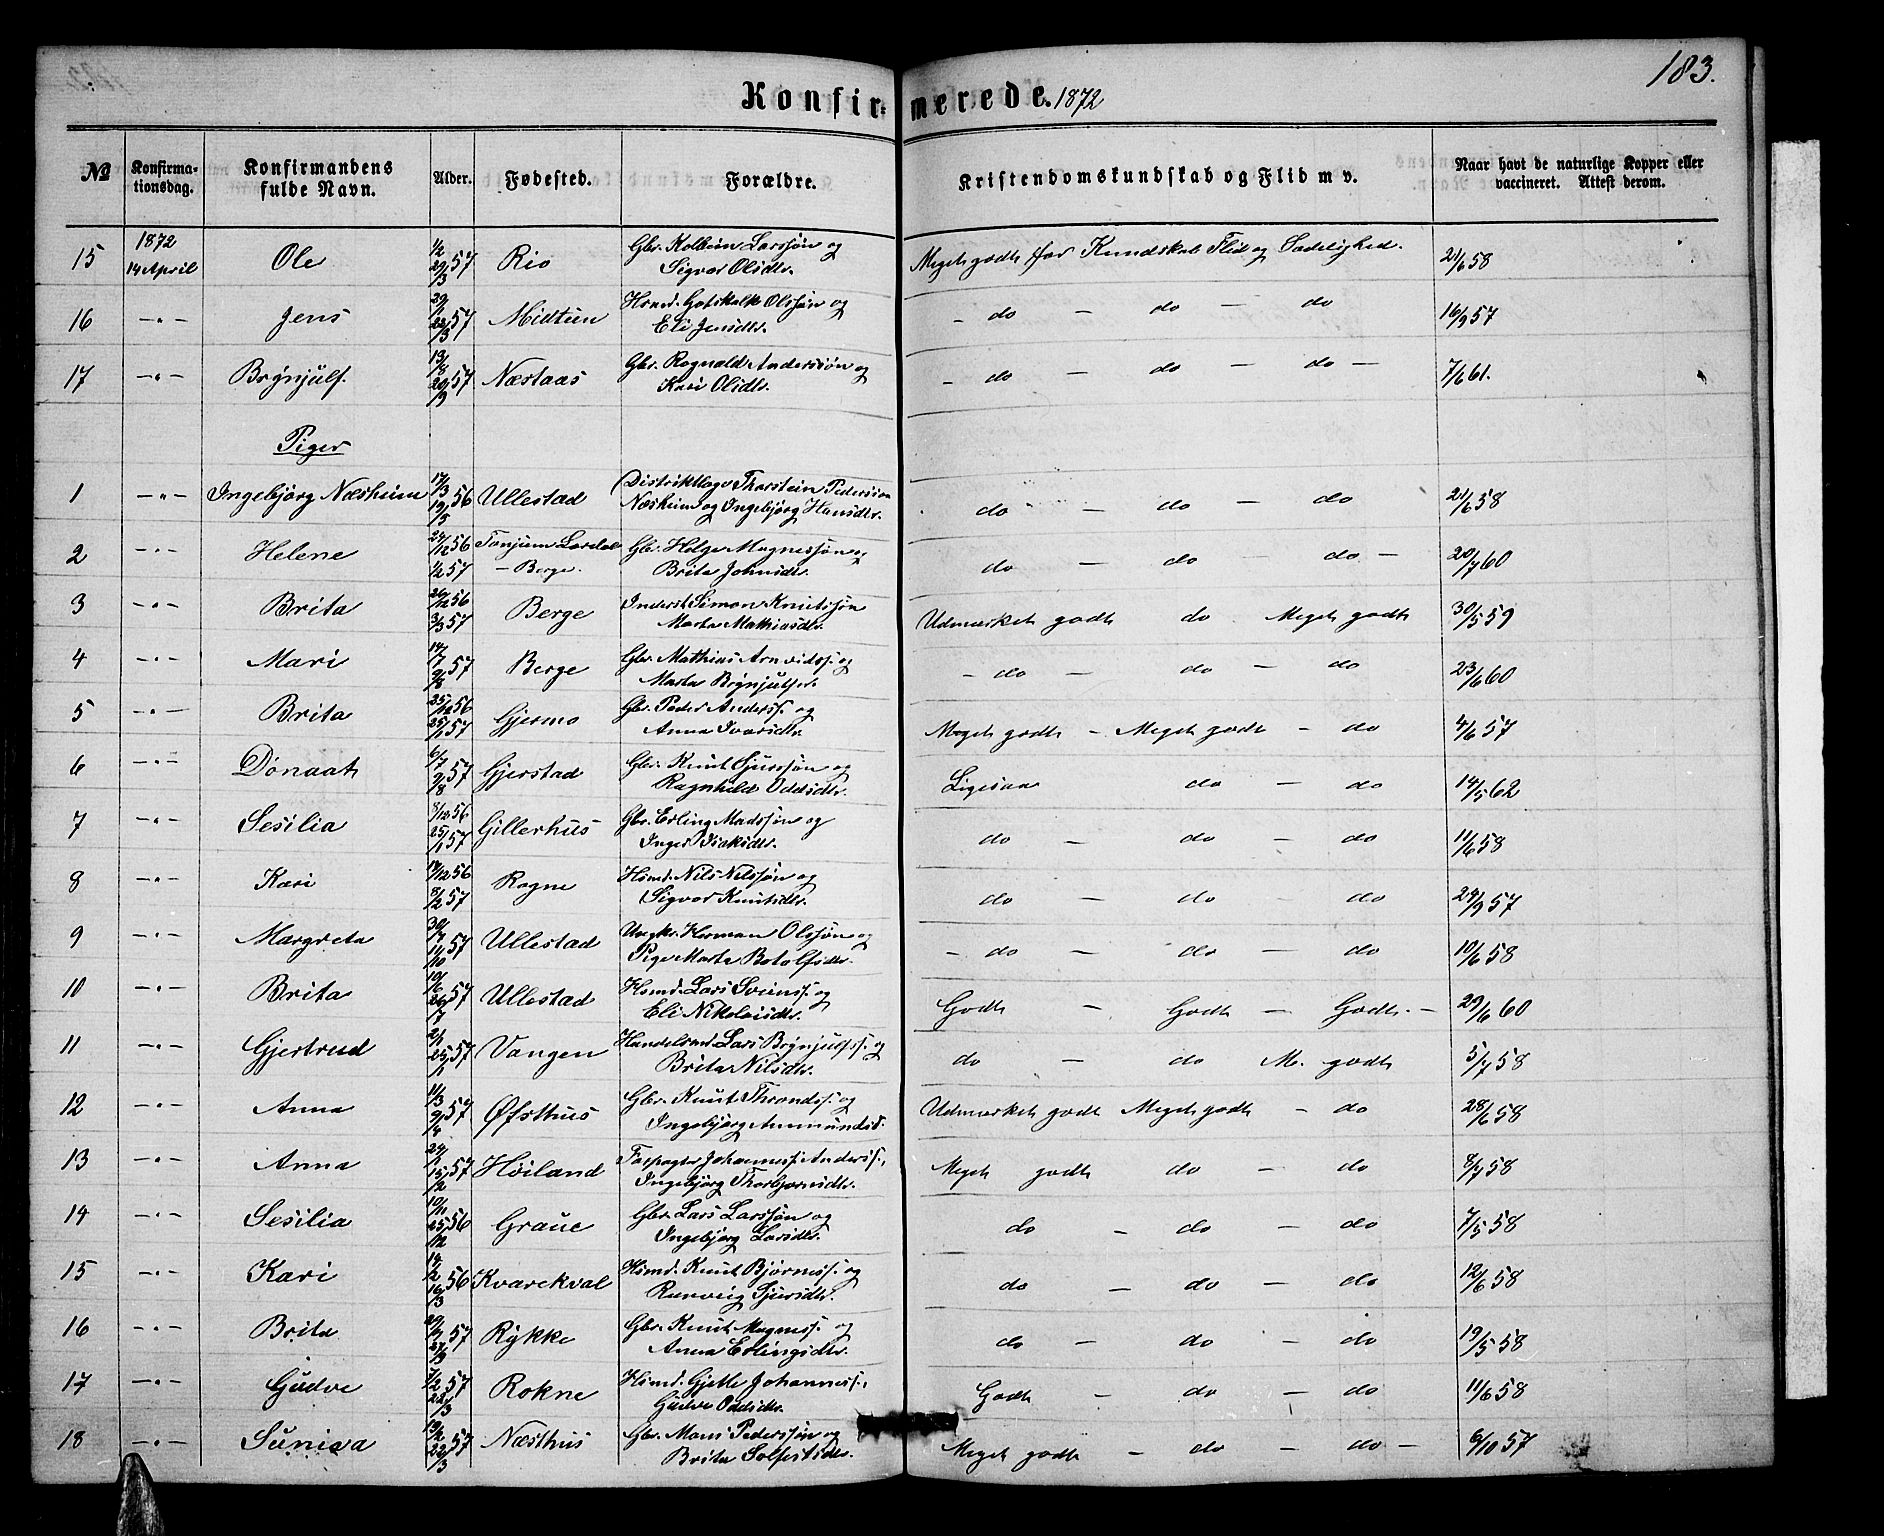 183.
Konfirmerede. 1872
№ Konfirma-tionsdag. Konfirmandens fulde Navn. Alder. Fødested. Forældre. Kristendomskundskab og Flid m v. Naar havt de naturlige Kopper eller vaccineret. Attest derom.
15 1872 14 April Ole 1/2 29/3 57 Rio Gbr. Kolbein Larssøn og Sigvor Olsdtr. Meget godt for Kundskab Flid og Sædelighed. 21/6 58
16 -"- Jens 22/3 57 Midtun Hsmd. Gotskalk Olssøn og Eli Jensdtr. - do - do - do 16/9 57
17 -"- Brynjulf. 13/8 20/9 57 Næstaas Gbr. Rognald Anderssøn og Kari Olsdtr. - do - do - do - 7/6 61.
Piger
1 -"- Ingebjørg Næsheim 17/3 19/5 56 Ullestad Distriktlæge Thorstein Pederssøn Næsheim og Ingebjørg Hansdtr. do - do - do 21/6 58
2 -"- Helene 24/12 56 1/2 57 Tønjum Lærdal - Berge. Gbr. Helge Magnessøn og Brita Johnsdtr. do - do - do - 20/7 60
3 -"- Brita 26/12 56 3/3 57 Berge Inderst Simon Knutssøn Marta Mathiasdtr. Udmærket godt do Meget godt 30/5 59
4 -"- Mari 14/7 9/8 57 Berge Gbr. Mathias Arnvidss. og Marta Brynjulfsdr. - do - do - do 23/6 60
5 -"- Brita 25/12 56 25/1 57 Gjermo Gbr. Peder Anderss. og Anna Ivarsdtr. Meget godt - Meget godt - do 4/6 57
6 -"- Dönaat 6/7 9/8 57 Gjerstad Gbr. Knut Sjurssøn og Ragnhild Oddsdtr. Ligesaa do - do 14/5 62
7 -"- Sesilia 8/12 56 25/1 57 Gillerhus Gbr. Erling Madssøn og Inger Isaksdtr. do - do - do 11/6 58
8 -"- Kari 14/12 56 8/2 57 Rogne Hsmd. Nils Nilssøn og Sigvor Knutsdtr. do - do - do 24/9 57
9 -"- Margreta 57 Ullestad Ungkr. Herman Olssøn og Pige Marta Botolfsdtr. - do - do - do 10/6 58
10 -"- Brita 10/6 26/7 57 Ullestad Hsmd. Lars Svenss. og Eli Nikolaisdtr. Godt - Godt - Godt. - 29/6 60
11 -"- Gjertrud 2/1 25/1 57 Vangen Handelsmd. Lars Brynjulfss. og Brita Nilsdtr. do - do M. godt 5/7 58
12 -"- Anna 1/3 9/4 57 Øfsthus Gbr. Knut Throndss. og Ingebjørg Anmundsd. Udmærket godt Meget godt - do 28/6 58
13 -"- Anna 24/1 15/2 57 Höiland Forpagter Johanness. Anderss., Ingebjørg Thorbjørnsdtr. Meget godt do - do 8/7 58
14 -"- Sesilia 10/11 25/12 56 Graue Gbr. Lars Larssøn og Ingebjørg Larsdtr. do - do - do 7/5 58
15 -"- Kari 14/2 16/3 56 Kvarekval Hsmd. Knut Bjørness. og Ranveig Sjursdtr. do - do - do 12/6 58
16 -"- Brita 57 Rykke Gbr. Knut Magness. og Anna Erlingsdtr. do - do - do 19/5 58
17 -"- Gudve 7/2 22/3 57 Rokne Hsmd. Gjetle Johanness., Gudve Oddsdtr. Godt - do - do 11/6 58
18 -"- Suniva 13/2 22/3 57 Næsthus Gbr. Mons Pederssøn og Brita Solfestsdtr. Meget godt - do - do - 6/10 57